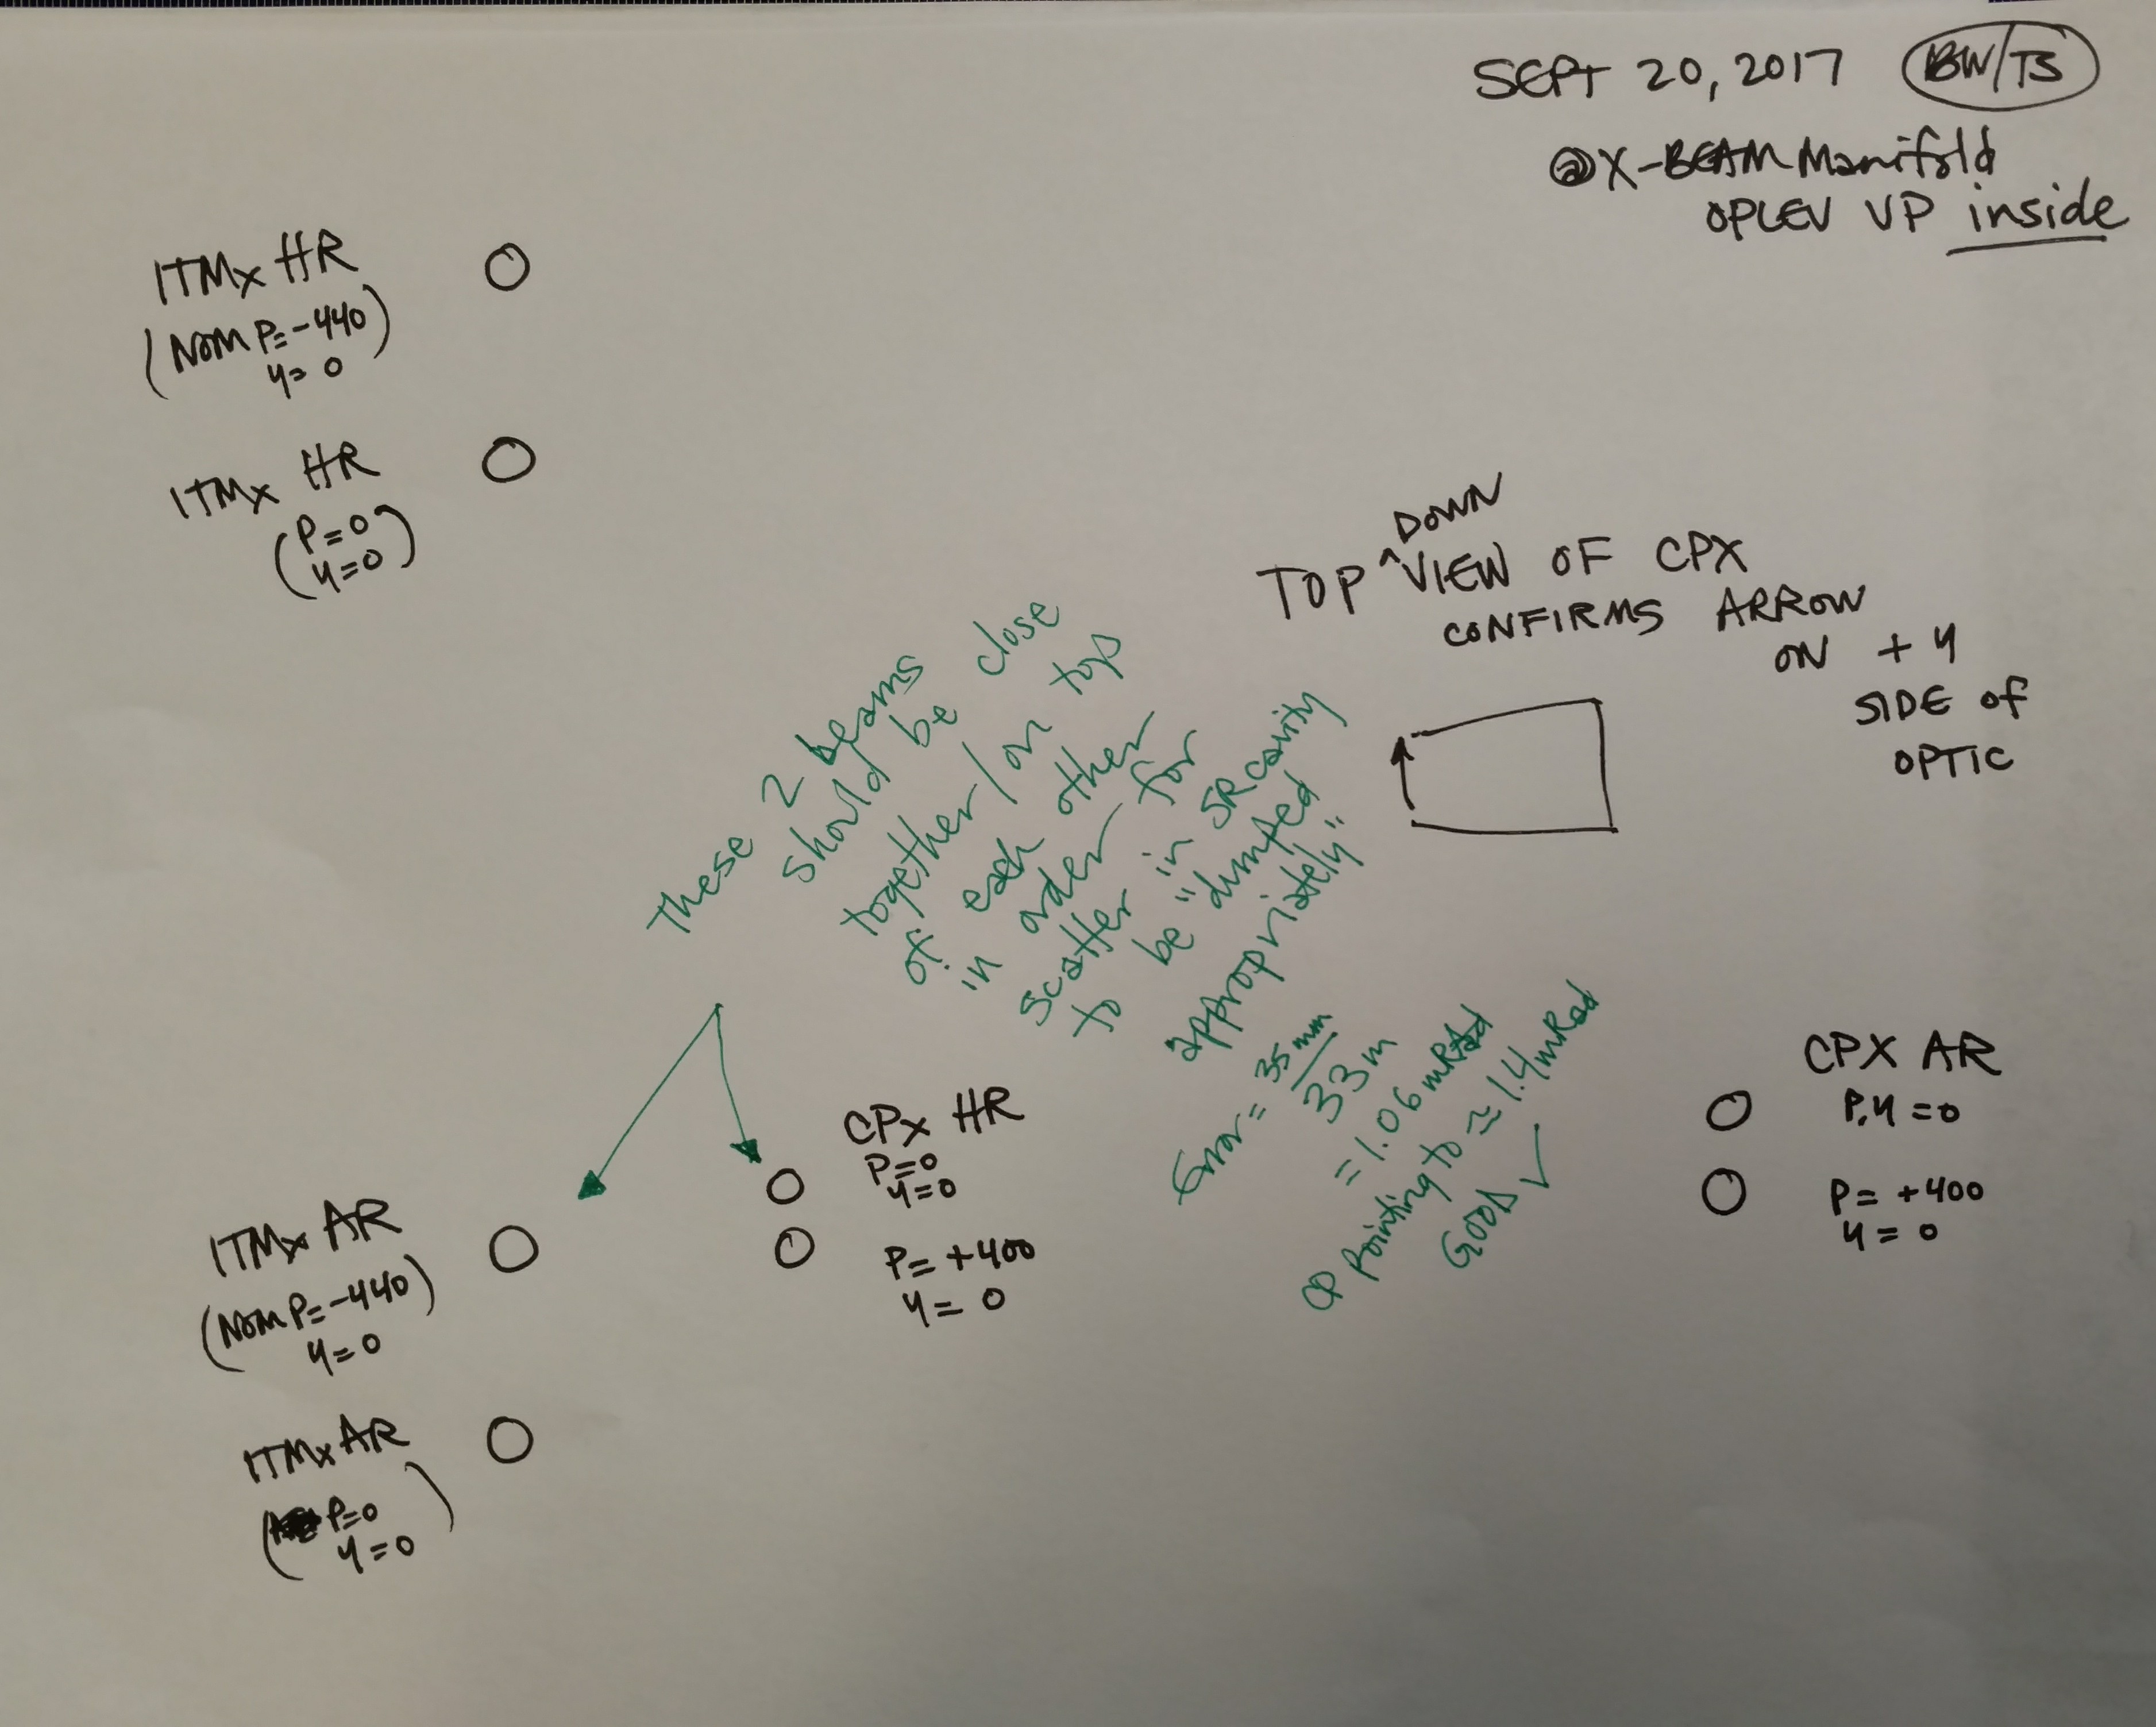 SEPT 20, 2017 BW/TS
@X-BEAM Manifold
OPLEV VP inside
ITMx HR
(NOM P=-440
y= 0)
ITMx HR
(P=0
y=0)
TOP ^DOWN VIEW OF CPX
CONFIRMS ARROW
ON + y
SIDE of
OPTIC
These 2 beams
should be close
together/on top
of each other
in order for
scatter in SR cavity
to be "dumped
appropriately"
Error = 35mm/33m
= 1.06 mRad
CP Pointing to ≈ 1.4mRad
GOOD ✓
CPX AR
P,y =0
P= +400
y= 0
CPX HR
P=0
y=0
P= +400
y= 0
ITMx AR
(NOM P=-440
y=0)
ITMx AR
(P=0
y=0)